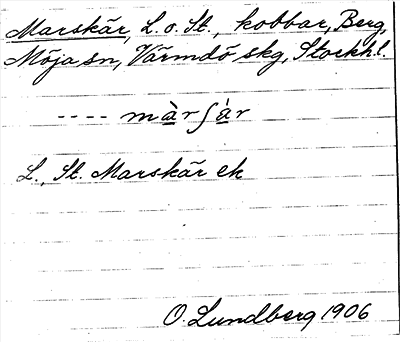 Marskär, L. o. St., kobbar, Berg,
Möja sn, Värmdö skg, Stockh.l.
---- màrʃàr
L., St. Marskär ek
O. Lundberg 1906